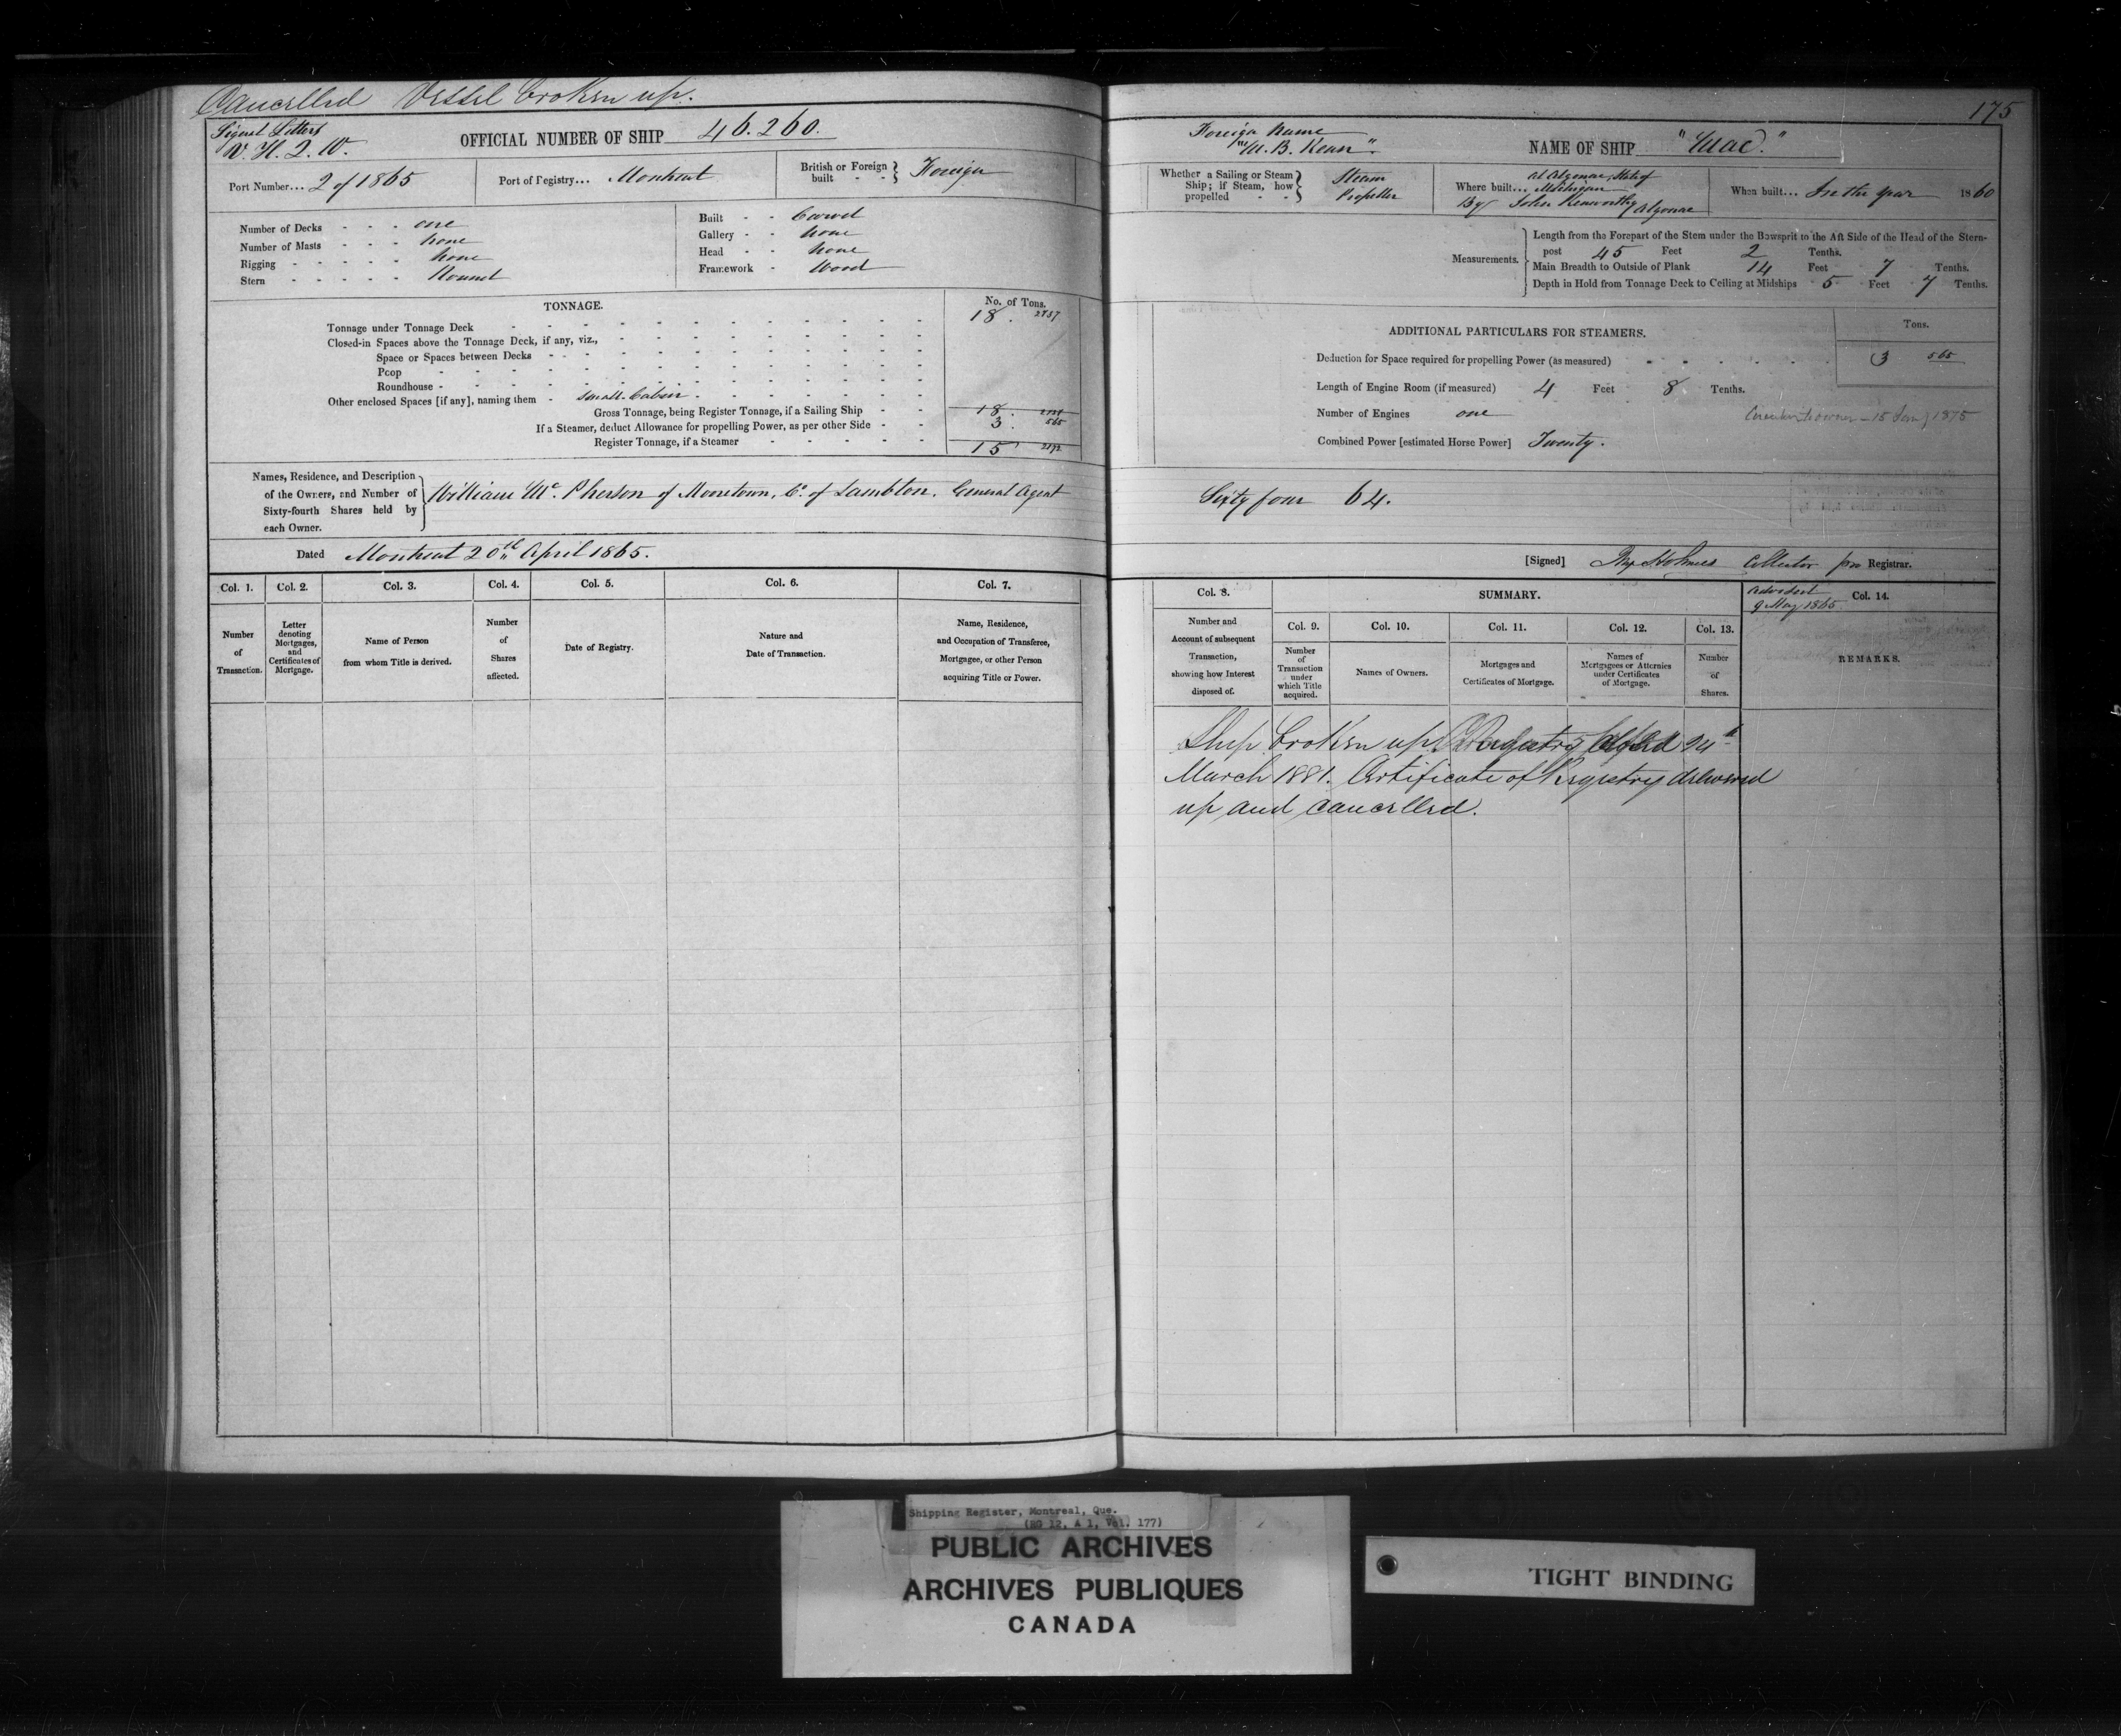 Cancelled Vessel broken up.
Signal Letters
V. H. Q. W.
OFFICIAL NUMBER OF SHIP 46.260.
Port Number... 2 of 1865
Port of Registry... Montreal
British or Foreign built - - Foreign
Number of Decks - - - one
Number of Masts - - - none
Rigging - - - - - none
Stern - - - - - Round
Built - - Carvel
Gallery - - none
Head - - none
Framework - Wood
TONNAGE.
No. of Tons.
Tonnage under Tonnage Deck 18.
Closed-in Spaces above the Tonnage Deck, if any, viz.,
Space or Spaces between Decks
Poop
Roundhouse
Other enclosed Spaces [if any], naming them - Small Cabin
Gross Tonnage, being Register Tonnage, if a Sailing Ship - - 18.
If a Steamer, deduct Allowance for propelling Power, as per other Side - - 3. 565
Register Tonnage, if a Steamer 15
Names, Residence, and Description
of the Owners, and Number of
Sixty-fourth Shares held by
each Owner.
William Mc.Pherson of Mooretown, Co. of Lambton. General Agent
Dated Montreal 20th April 1865.
Col. 1. Col. 2. Col. 3. Col. 4. Col. 5. Col. 6. Col. 7.
Number
of
Transaction.
Letter
denoting
Mortgages,
and
Certificates of
Mortgage.
Name of Person
from whom Title is derived.
Number
of
Shares
affected.
Date of Registry.
Nature and
Date of Transaction.
Name, Residence,
and Occupation of Transferee,
Mortgagee, or other Person
acquiring Title or Power.
175
Foreign Name
"M. B. Kean".
NAME OF SHIP "Mac."
Whether a Sailing or Steam
Ship; if Steam, how
propelled - -
Steam
Propeller
Where built... at Algonac, State of
Michigan
By John Kenworthy Algonac
When built... In the year 1860
Measurements.
Length from the Forepart of the Stem under the Bowsprit to the Aft Side of the Head of the Stern-
post 45 Feet 2 Tenths.
Main Breadth to Outside of Plank 14 Feet 7 Tenths.
Depth in Hold from Tonnage Deck to Ceiling at Midships 5 Feet 7 Tenths.
ADDITIONAL PARTICULARS FOR STEAMERS.
Tons.
Deduction for Space required for propelling Power (as measured) 3 565
Length of Engine Room (if measured) 4 Feet 8 Tenths.
Number of Engines one
Circular to owner - 15 Jany 1875
Combined Power [estimated Horse Power] Twenty.
Sixty four 64.
[Signed] Holmes Collector pro Registrar.
Col. 8.
SUMMARY.
9 May 1865
Col. 14.
Number and
Account of subsequent
Transaction,
showing how Interest
disposed of.
Col. 9. Col. 10. Col. 11. Col. 12. Col. 13.
Number
of
Transaction
under
which Title
acquired.
Names of Owners.
Mortgages and
Certificates of Mortgage.
Names of
Mortgagees or Attornies
under Certificates
of Mortgage.
Number
of
Shares.
REMARKS.
Ship broken up. Registry closed
March 1881. Certificate of Registry delivered
up and cancelled.
Shipping Register, Montreal, Que.
(RG 12, A 1, Vol. 177)
PUBLIC ARCHIVES
ARCHIVES PUBLIQUES
CANADA
TIGHT BINDING